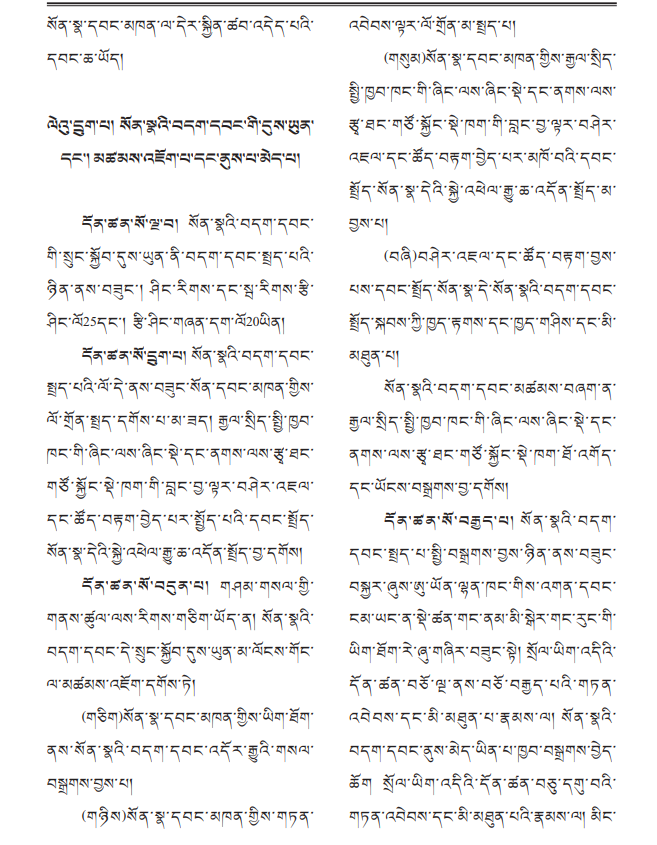 སོན་སྣ་དབང་མཁན་ལ་དེར་སྐྱིན་ཚབ་འདེད་པའི་
དབང་ཆ་ཡོད།
ལེའུ་དྲུག་པ། སོན་སྣའི་བདག་དབང་གི་དུས་ཡུན་
དང་། མཚམས་འཇོག་པ་དང་ནུས་པ་མེད་པ།
དོན་ཚན་སོ་ལྔ་བ། སོན་སྣའི་བདག་དབང་
གི་སྲུང་སྐྱོབ་དུས་ཡུན་ནི་བདག་དབང་སྤྲད་པའི་
ཉིན་ནས་བཟུང་། ཤིང་རིགས་དང་སྦ་རིགས་རྩི་
ཤིང་ལོ25དང་། རྩི་ཤིང་གཞན་དག་ལོ20ཡིན།
དོན་ཚན་སོ་དྲུག་པ། སོན་སྣའི་བདག་དབང་
སྤྲད་པའི་ལོ་དེ་ནས་བཟུང་སོན་དབང་མཁན་གྱིས་
ལོ་གྲོན་སྤྲད་དགོས་པ་མ་ཟད། རྒྱལ་སྲིད་སྤྱི་ཁྱབ་
ཁང་གི་ཞིང་ལས་ཞིང་སྡེ་དང་ནགས་ལས་རྩྭ་ཐང་
གཙོ་སྐྱོང་སྡེ་ཁག་གི་བླང་བྱ་ལྟར་བཤེར་འཇལ་
དང་ཚོད་བརྟག་བྱེད་པར་སྤྱོད་པའི་དབང་སྤྲོད་
སོན་སྣ་དེའི་སྐྱེ་འཕེལ་རྒྱུ་ཆ་འདོན་སྤྲོད་བྱ་དགོས།
དོན་ཚན་སོ་བདུན་པ། གཤམ་གསལ་གྱི་
གནས་ཚུལ་ལས་རིགས་གཅིག་ཡོད་ན། སོན་སྣའི་
བདག་དབང་དེ་སྲུང་སྐྱོབ་དུས་ཡུན་མ་ལོངས་གོང་
ལ་མཚམས་འཇོག་དགོས་ཏེ།
(གཅིག)སོན་སྣ་དབང་མཁན་གྱིས་ཡིག་ཐོག་
ནས་སོན་སྣའི་བདག་དབང་འདོར་རྒྱུའི་གསལ་
བསྒྲགས་བྱས་པ།
(གཉིས)སོན་སྣ་དབང་མཁན་གྱིས་གཏན་
འབེབས་ལྟར་ལོ་གྲོན་མ་སྤྲད་པ།
(གསུམ)སོན་སྣ་དབང་མཁན་གྱིས་རྒྱལ་སྲིད་
སྤྱི་ཁྱབ་ཁང་གི་ཞིང་ལས་ཞིང་སྡེ་དང་ནགས་ལས་
རྩྭ་ཐང་གཙོ་སྐྱོང་སྡེ་ཁག་གི་བླང་བྱ་ལྟར་བཤེར་
འཇལ་དང་ཚོད་བརྟག་བྱེད་པར་མཁོ་བའི་དབང་
སྤྲོད་སོན་སྣ་དེའི་སྐྱེ་འཕེལ་རྒྱུ་ཆ་འདོན་སྤྲོད་མ་
བྱས་པ།
(བཞི)བཤེར་འཇལ་དང་ཚོད་བརྟག་བྱས་
པས་དབང་སྤྲོད་སོན་སྣ་དེ་སོན་སྣའི་བདག་དབང་
སྤྲོད་སྐབས་ཀྱི་ཁྱད་རྟགས་དང་ཁྱད་གཤིས་དང་མི་
མཐུན་པ།
སོན་སྣའི་བདག་དབང་མཚམས་བཞག་ན་
རྒྱལ་སྲིད་སྤྱི་ཁྱབ་ཁང་གི་ཞིང་ལས་ཞིང་སྡེ་དང་
ནགས་ལས་རྩྭ་ཐང་གཙོ་སྐྱོང་སྡེ་ཁག་ཐོ་འགོད་
དང་ཡོངས་བསྒྲགས་བྱ་དགོས།
དོན་ཚན་སོ་བརྒྱད་པ། སོན་སྣའི་བདག་
དབང་སྤྲད་པ་སྤྱི་བསྒྲགས་བྱས་ཉིན་ནས་བཟུང་
བསྐྱར་ཞུས་ཨུ་ཡོན་ལྷན་ཁང་གིས་འགན་དབང་
ངམ་ཡང་ན་སྡེ་ཚན་གང་ནམ་མི་སྒེར་གང་རུང་གི་
ཡིག་ཐོག་རེ་ཞུ་གཞིར་བཟུང་སྟེ། སྲོལ་ཡིག་འདིའི་
དོན་ཚན་བཅོ་ལྔ་ནས་བཅོ་བརྒྱད་པའི་གཏན་
འབེབས་དང་མི་མཐུན་པ་རྣམས་ལ། སོན་སྣའི་
བདག་དབང་ནུས་མེད་ཡིན་པ་ཁྱབ་བསྒྲགས་བྱེད་
ཆོག སྲོལ་ཡིག་འདིའི་དོན་ཚན་བཅུ་དགུ་བའི་
གཏན་འབེབས་དང་མི་མཐུན་པའི་རྣམས་ལ། མིང་